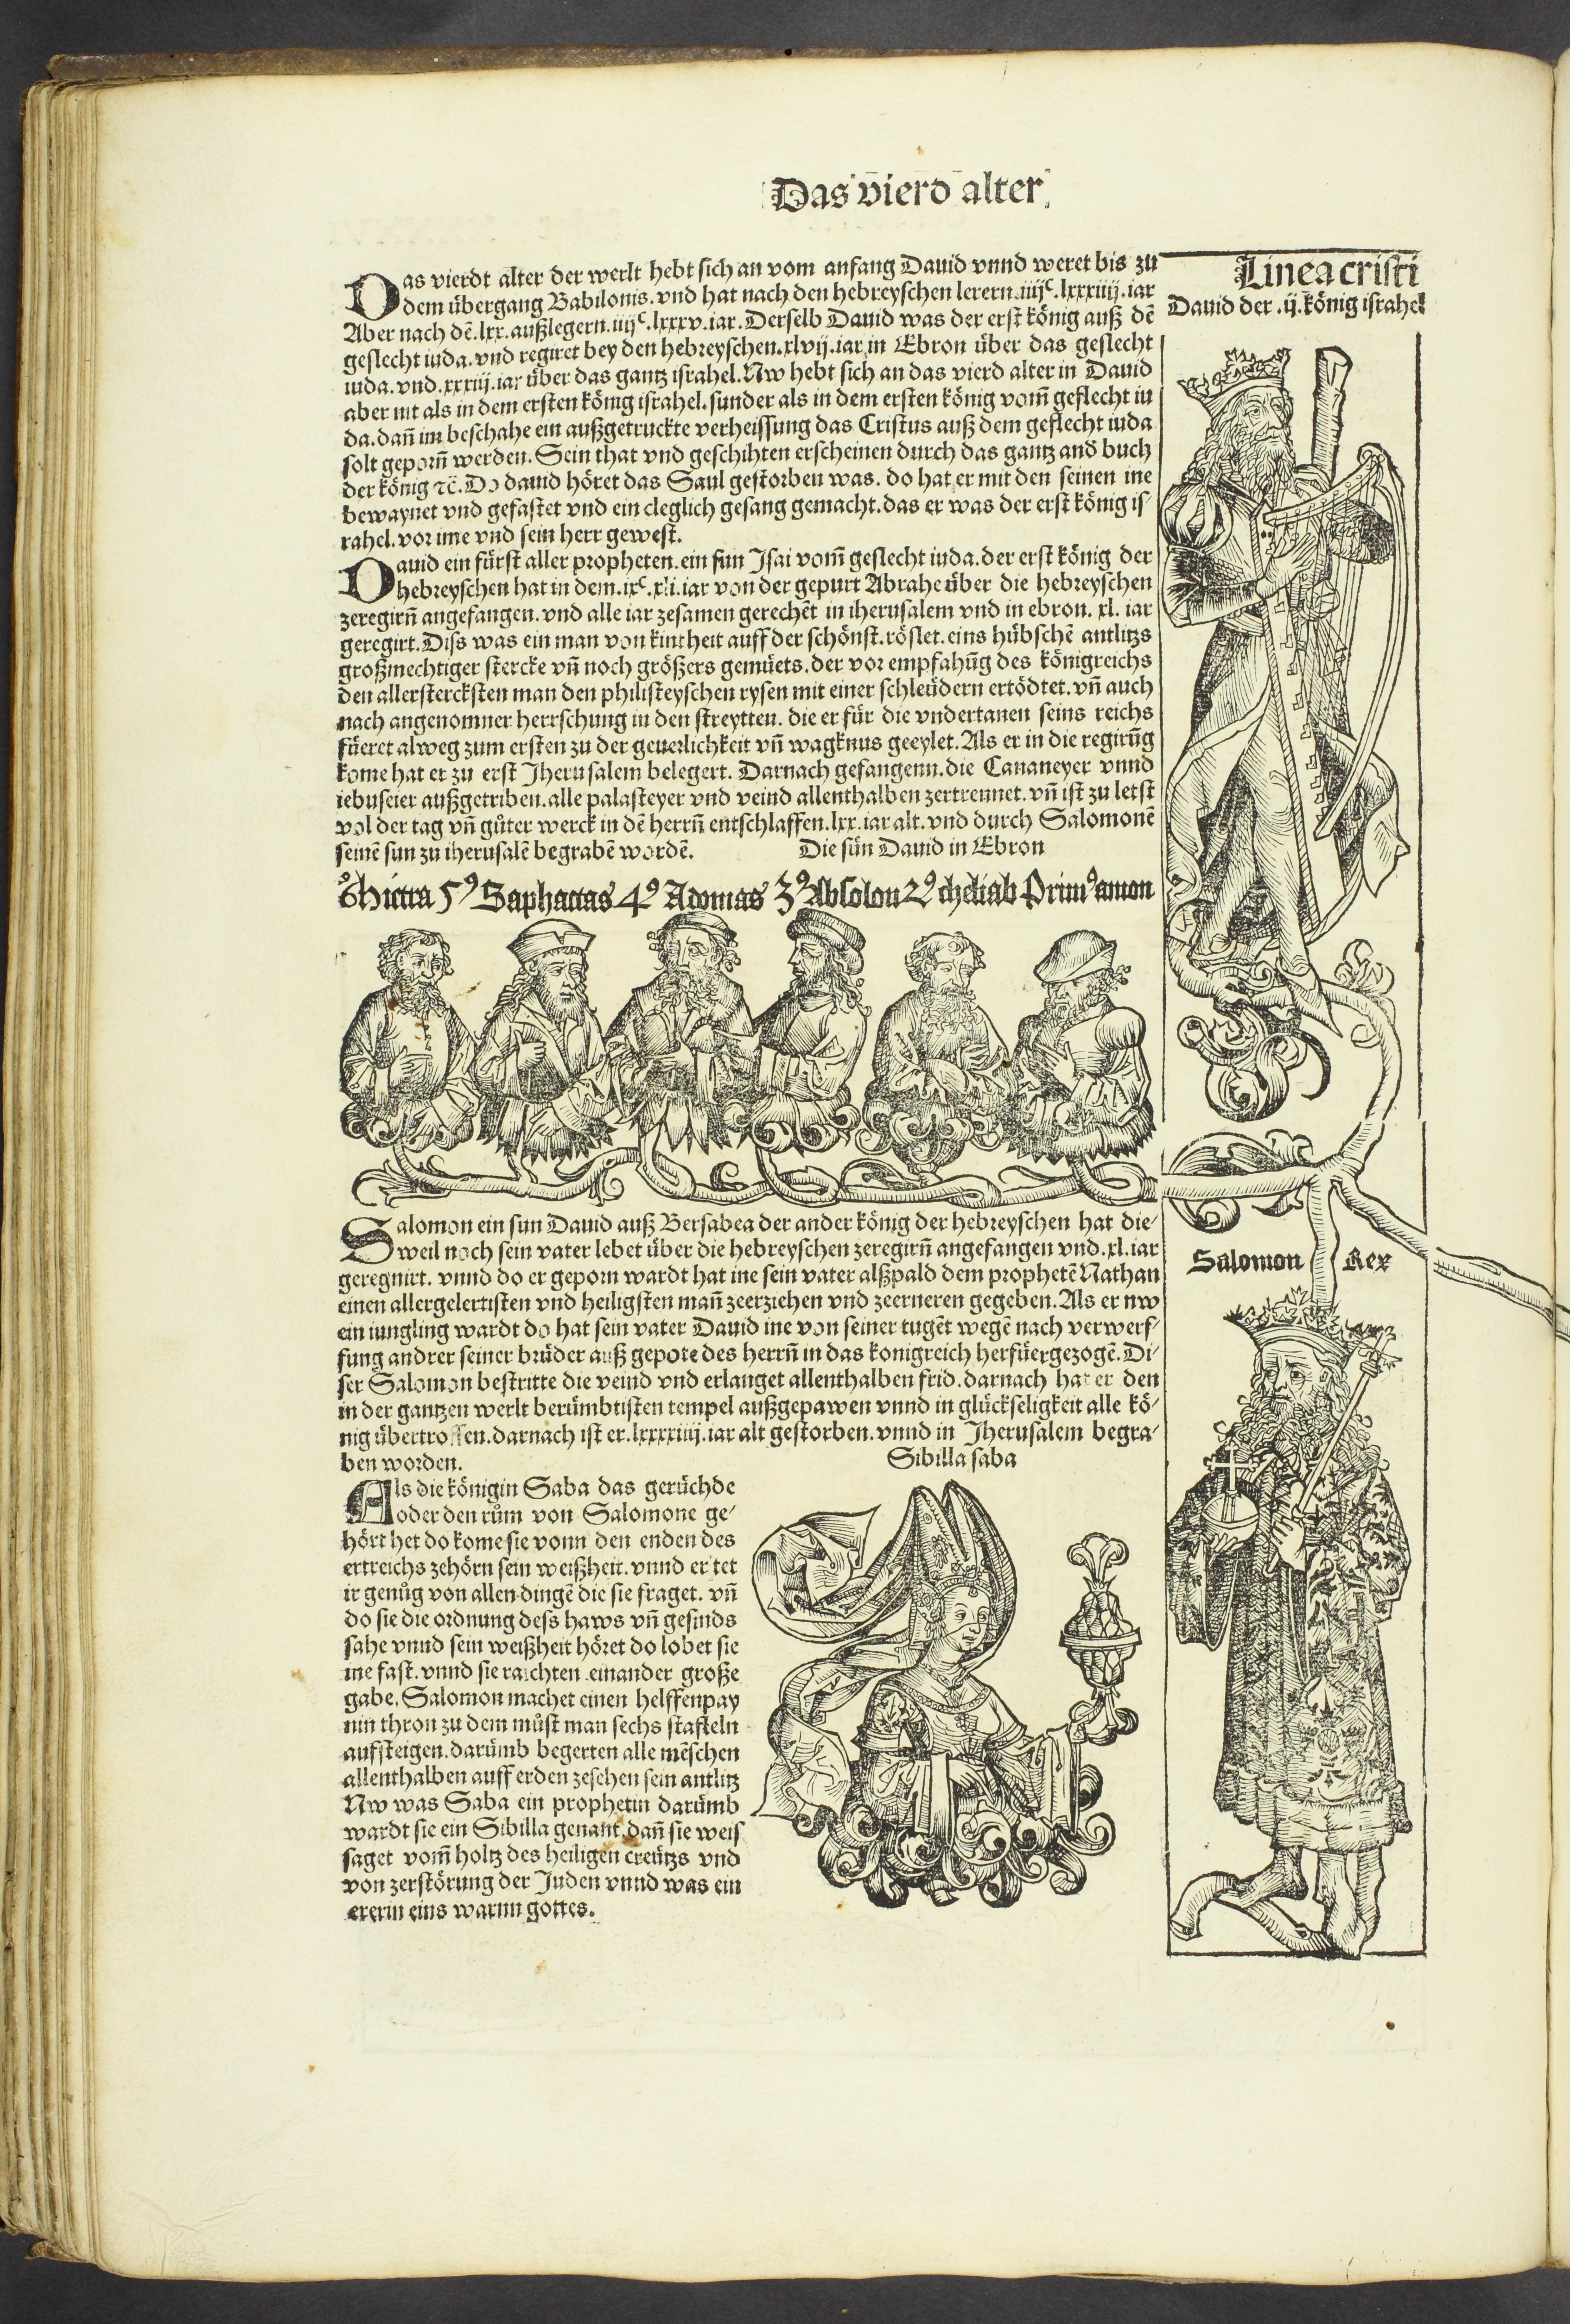 Das vierd alter
Das vierdt alter der werlt hebt sich an vom anfang Dauid vnnd weret bis zu
dem übergang Babilonis. vnd hat nach den hebreyschen lerern .iiijᶜ.lxxxiiij. iar
Aber nach dē .lxx. außlegern .iiijᶜ.lxxxv. iar. Derselb Dauid was der erst könig auß dē
geslecht iuda. vnd regiret bey den hebreyschen .xlvij. iar in Ebron über das geslecht
iuda. vnd .xxxiij. iar über das gantz israhel. Nw hebt sich an das vierd alter in Dauid
aber nit als in dem ersten könig israhel. sunder als in dem ersten könig vom̄ geslecht iu
da. dan̄ im beschahe ein außgetruckte verheissung das Cristus auß dem geslecht iuda
solt geporn̄ werden. Sein that vnd geschihten erscheinen durch das gantz and̄ buch
der könig ⁊c̄. Do dauid höret das Saul gestorben was. do hat er mit den seinen ine
bewaynet vnd gefastet vnd ein cleglich gesang gemacht. das er was der erst könig is/
rahel. vor ime vnd sein herr gewest.
Dauid ein fürst aller propheten. ein sun Isai vom̄ geslecht iuda. der erst könig der
hebreyschen hat in dem .ixᶜ.xli. iar von der gepurt Abrahe über die hebreyschen
zeregirn̄ angefangen. vnd alle iar zesamen gerechēt in iherusalem vnd in ebron. xl. iar
geregirt. Diss was ein man von kintheit auff der schönst. röslet. eins hübschē antlitzs
großmechtiger stercke vn̄ noch größers gemüets. der vor empfahūg des königreichs
den allerstercksten man den philisteyschen rysen mit einer schleüdern ertödtet. vn̄ auch
nach angenomner herrschung in den streytten. die er für die vndertanen seins reichs
füeret alweg zum ersten zu der geuerlichkeit vn̄ wagknus geeylet. Als er in die regirūg
kome hat er zu erst Jherusalem belegert. Darnach gefangenn. die Cananeyer vnnd
iebuseier außgetriben. alle palasteyer vnd veind allenthalben zertrennet. vn̄ ist zu letst
vol der tag vn̄ gůter werck in dē herrn̄ entschlaffen. lxx. iar alt. vnd durch Salomonē
seinē sun zu iherusalē begrabē wordē.
Die sün Dauid in Ebron
6⁹ hictra 5⁹ Saphacias 4⁹ Adonias 3⁹ Absolon 2⁹ cheliab Prim⁹ amon
Salomon ein sun Dauid auß Bersabea der ander könig der hebreyschen hat die/
weil noch sein vater lebet über die hebreyschen zeregirn̄ angefangen vnd .xl. iar
geregnirt. vnnd do er geporn wardt hat ine sein vater alßpald dem prophetē Nathan
einen allergelertisten vnd heiligsten man̄ zeerziehen vnd zeerneren gegeben. Als er nw
ein iungling wardt do hat sein vater Dauid ine von seiner tugēt wegē nach verwerf/
fung andrer seiner brüder auß gepote des herrn̄ in das konigreich herfüergezogē. Di/
ser Salomon bestritte die veind vnd erlanget allenthalben frid. darnach hat er den
in der gantzen werlt berümbtisten tempel außgepawen vnnd in glückseligkeit alle kö/
nig übertroffen. darnach ist er .lxxxxiiij. iar alt gestorben. vnnd in Jherusalem begra/
ben worden.
Sibilla saba
Als die königin Saba das gerüchde
oder den rům von Salomone ge/
hört het do kome sie vonn den enden des
ertreichs zehörn sein weißheit. vnnd er tet
ir genůg von allen dingē die sie fraget. vn̄
do sie die ordnung dess haws vn̄ gesinds
sahe vnnd sein weißheit höret do lobet sie
ine fast. vnnd sie raichten einander große
gabe. Salomon machet einen helffenpay
nin thron zu dem můst man sechs staffeln
aufsteigen. darümb begerten alle mēschen
allenthalben auff erden zesehen sein antlitz
Nw was Saba ein prophetin darümb
wardt sie ein Sibilla genant. dan̄ sie weis
saget vom̄ holtz des heiligen creützs vnd
von zerstörung der Juden vnnd was ein
ererin eins warnn gottes.
Linea cristi
Dauid der .ij. könig israhel
Salomon Rex